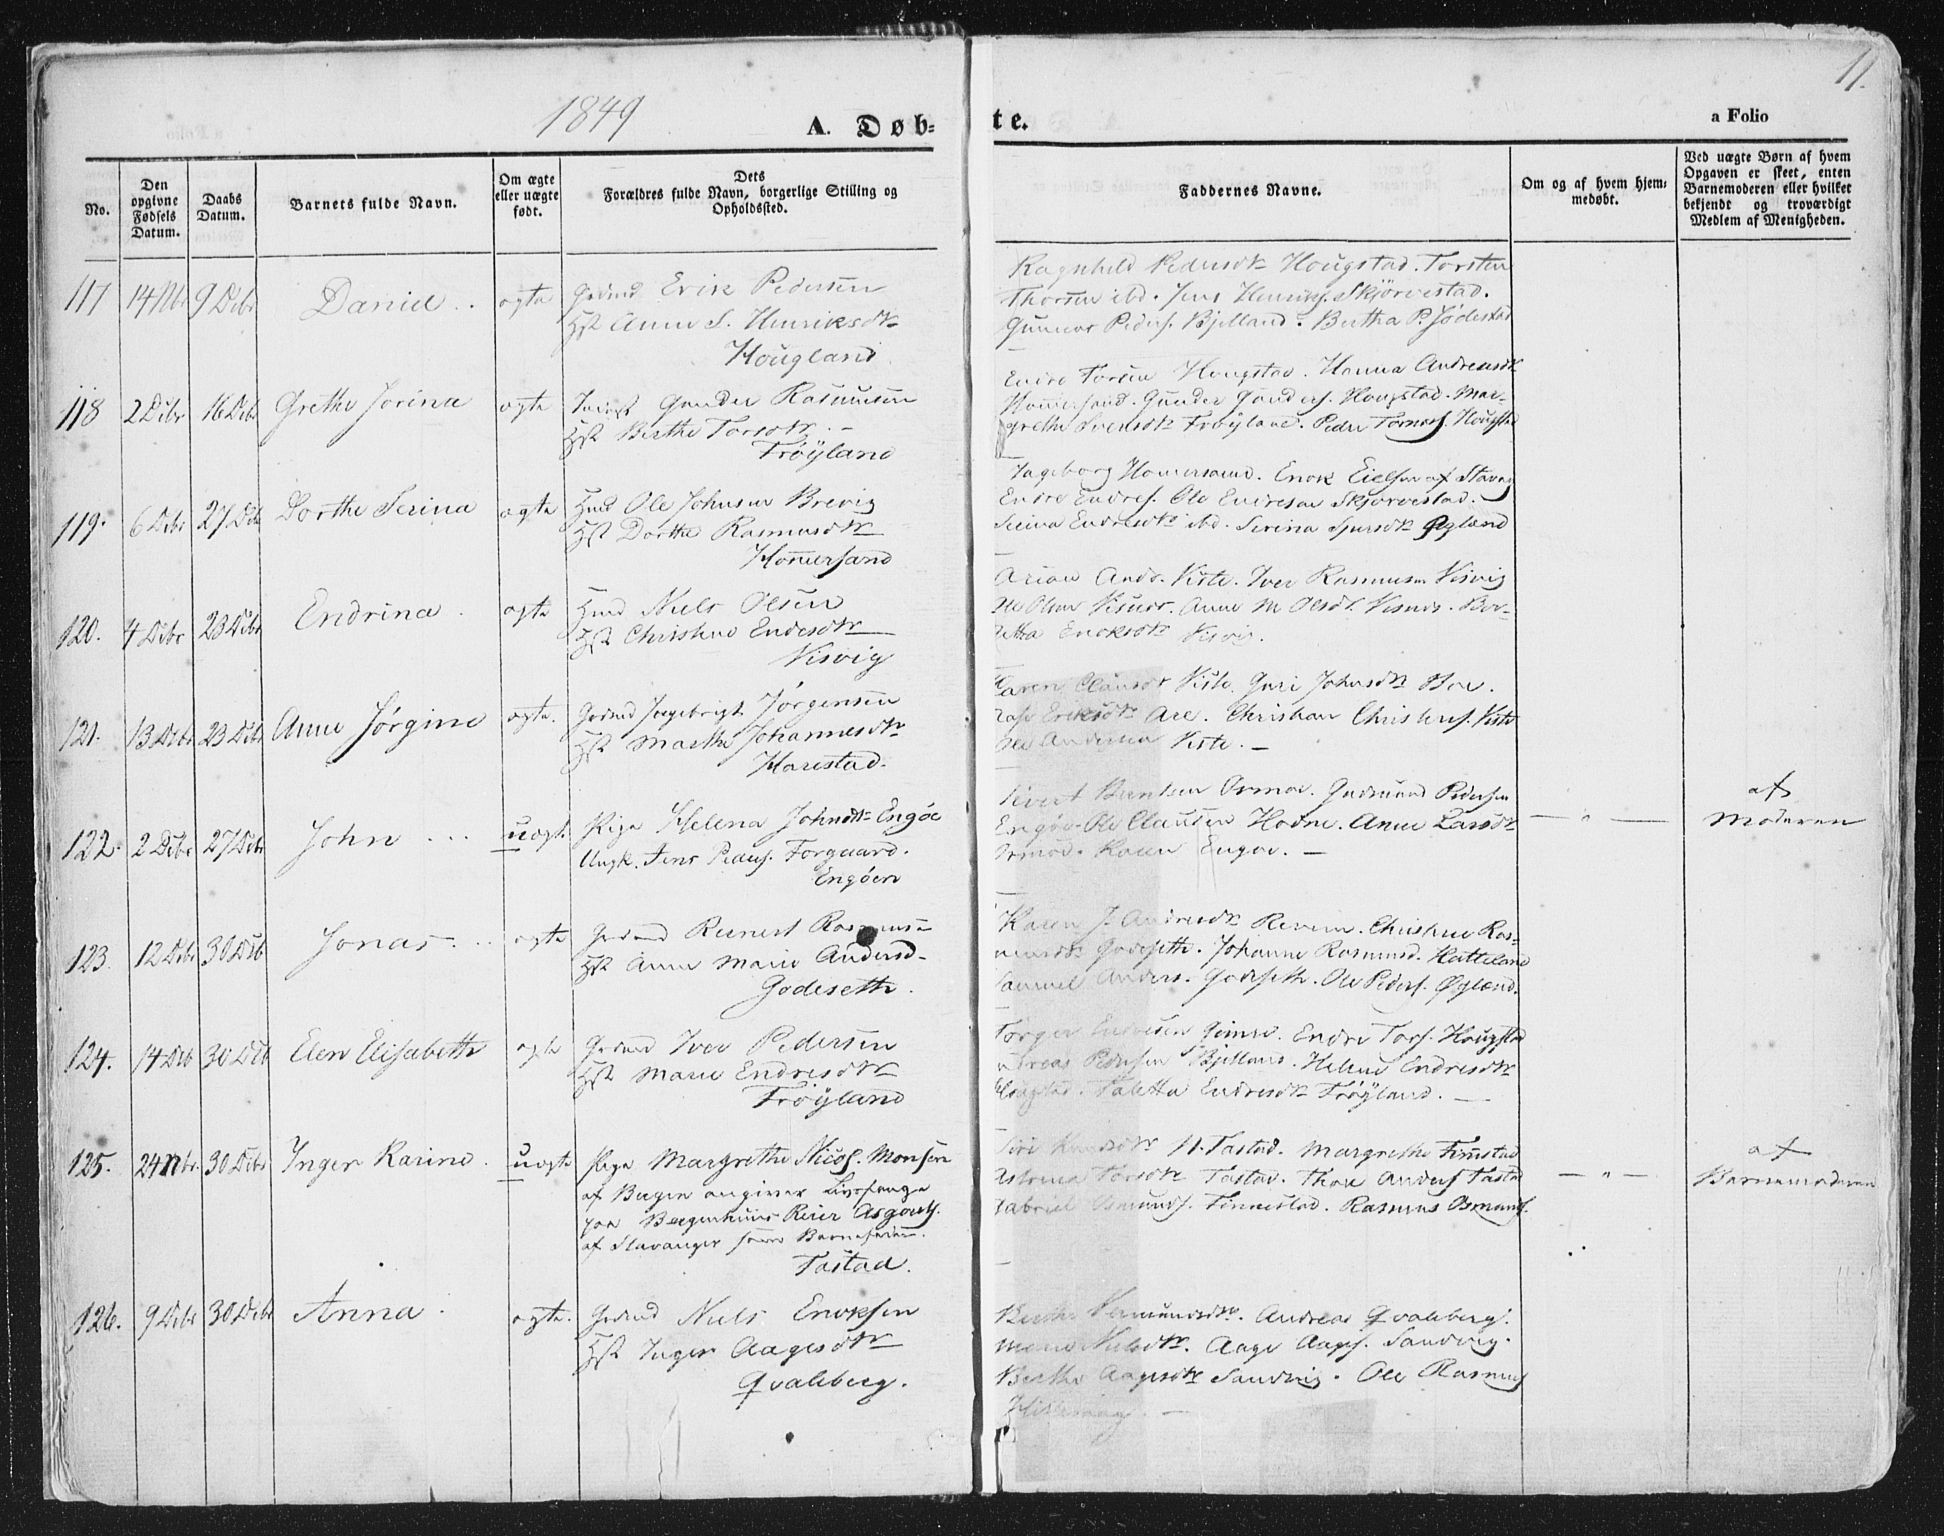 1849
11.
A. Døb=
te.
a Folio
No.
Den opgivne Fødsels Datum.
Daabs Datum.
Barnets fulde Navn.
Om ægte eller uægte født.
Dets Forældres fulde Navn, borgerlige Stilling og Opholdssted.
Faddernes Navne.
Om og af hvem hjemmedøbt.
Ved uægte Børn af hvem Opgaven er skeet, enten Barnemoderen eller hvilket bekjendt og troværdigt Medlem af Menigheden.
117 14 Nbr 9 Debr Daniel ægte Grdmd Erik Pedersen
Hst Anne S. Henriksdtr
Hougland
Ragnhild Pedersdtr Hougstad. Torsten
Thorsen ibd. Jens Henriks. Skjørvestad.
Gunnar Peders. Bjelland. Bertha P. Jødestad
118 2 Debr 16 Debr Grethe Jorina ægte Gunder Rasmussen
Hst Berthe Torsdtr
Frøyland
Endre Torsen Hougstad. Hanna Andreasdtr
Homersand. Gunder Gunders. Hougstad. Mar-
grethe Svensdtr Frøyland. Peder Hougstad
119. 6 Debr 27 Deb Dorthe Serina ægte Hmd Ole Johnsen Brevig
Hst Dorthe Rasmusdtr
Homersand
Ingeborg Homersand. Enok Eielsen af Stavang
Endre Endres. Ole Endresen Skjørvestad.
Serina Endresdtr ibd. Serina Øgland
120. 4 Debr 23 Debr Endrina ægte Hmd Niels Olsen
Hst Christine Endresdtr
Visvig
Anne M. Olsdt. Visnes. Ber-
Visvig.
121. 13 Debr 23 Deb Anne Jørgine ægte. Grdmd Ingebrigt Jørgensen
Hst Marthe Johannesdtr
Harestad.
Karen Clausdtr Viste. Guri Johnsdtr Boe.
Eriksdtr Are. Christian Christens. Viste
Ole Andersen Viste. —
122. 2 Debr 27 Debr John uægt. Piga Helena Johnsdtr Engøe
Ungk. Jens Peders. Forgaard.
Engøen
Sivert Berntsen Ormøe. Gudmund Pedersen
Engøe. Ole Clausen Hodne. Anne Larsdtr
Ormøe. Karen Engøe. —
— " —
af
Moderen
123. 12 Debr 30 Deb Jonas ægte Grdmd Reinert Rasmussen
Hst Anne Marie Andersd-
Godeseth.
Karen J. Andresdtr Revem. Christine Ras-
musdtr Godeseth. Johanne Rasmusd. Hatteland
Samuel Anders. Godeseth. Ole Peders. Øgland.
124. 14 Deb 30 Deb Elen Elisabeth ægte Grdmd Iver Pedersen
Hst Marie Endresdtr
Frøyland
Torger Endresen Gimre. Endre Tors. Hougstad
Andreas Pedersen Bjelland. Helene Endresdtr
Hougstad. Taletta Endresdtr Frøyland. —
125. 24 Nbr. 30 Debr Inger Karine. uægte Piga Margrethe Nicol. Monsen
af Bergen angiver Livsfange
paa Bergenhuus Reier Asgauts.
af Stavanger som Barnefader.
Tastad.
Siri Knudsdtr N. Tastad. Margrethe Finnestad
Torsdtr Tastad. Thore Anders Tastad
Gabriel Osmunds. Finnestad. Rasmus Osmunds.
— " —
af
Barnemoderen
126. 9 Debr 30 Debr Anna. ægte. Grdmd Niels Enoksen
Hst Inger Aagesdtr
Qvaleberg.
Berthe Vermundsdtr. Andreas Qvaleberg.
Marie Nielsdtr. Aage Aages. Sandvig.
Berthe Aagesdtr Sandvig. Ole Rasmus
Hillevaag. —